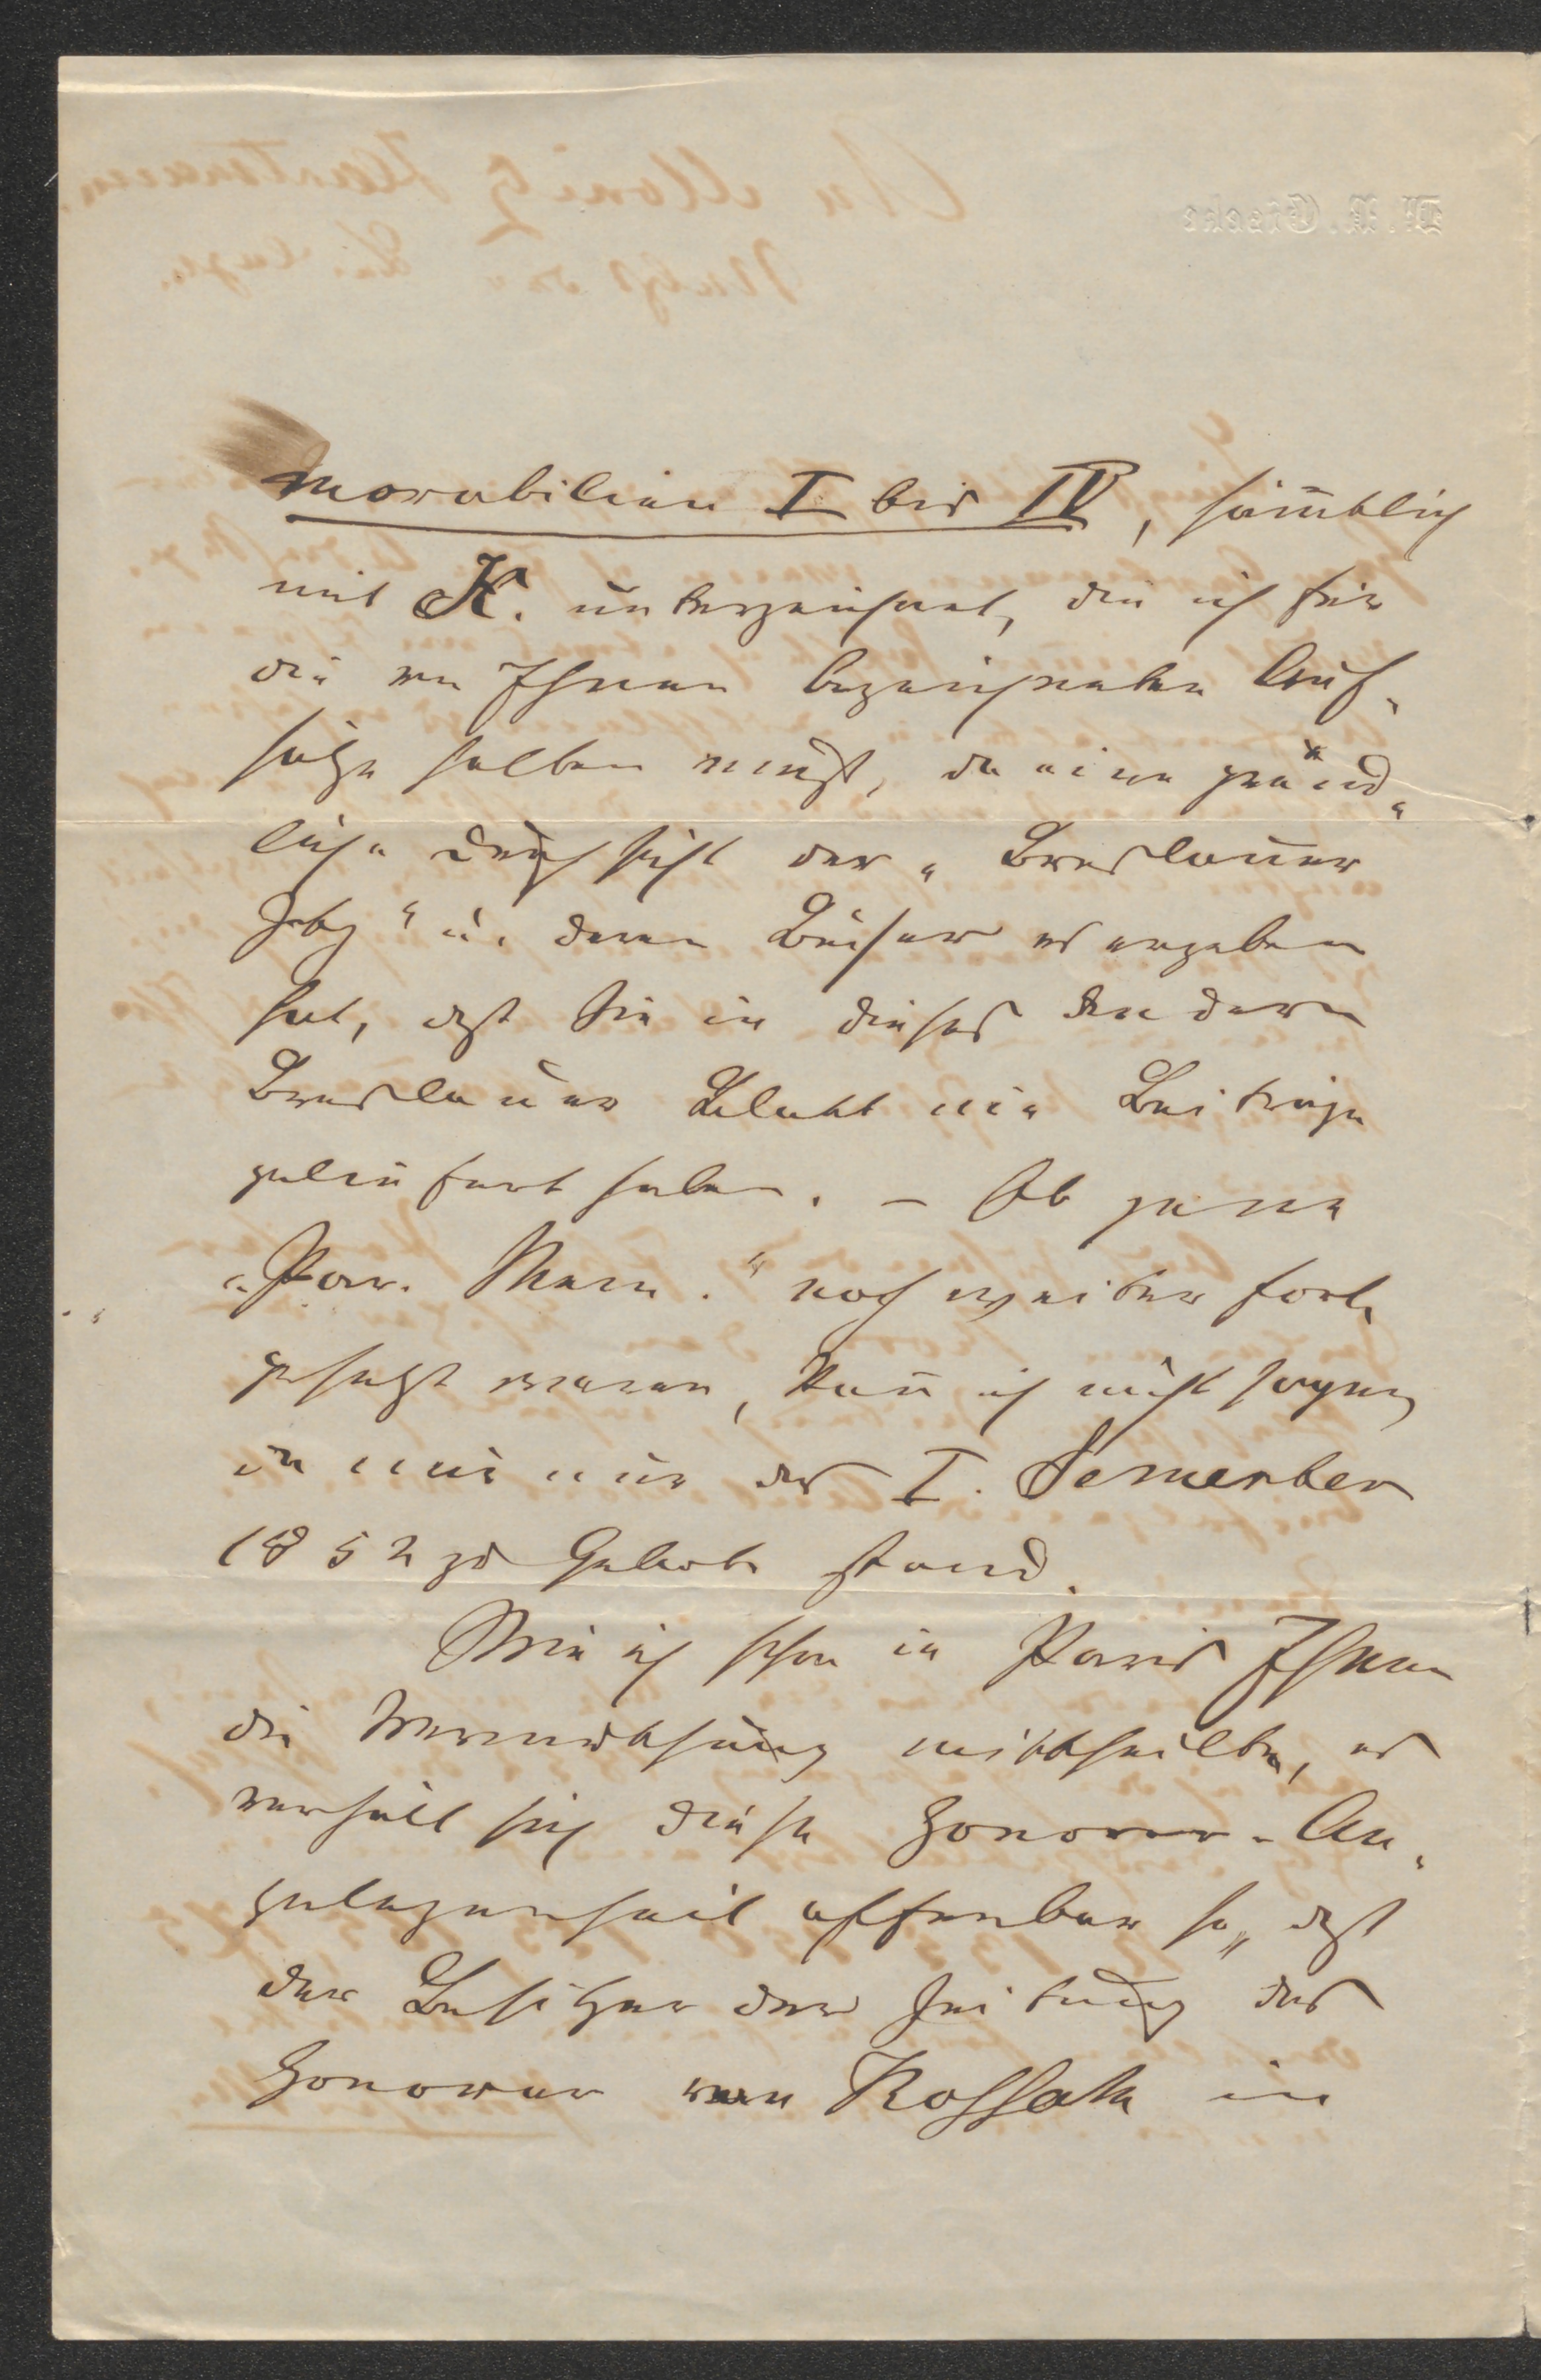 morabilien I bis IV, sämtlich
mit K. unterzeichnet, die ich für
die von Ihnen bezeichneten Auf-
sätze halten muß, da eine gründ-
liche Durchsicht der „Breslauer
Ztg“ u. deren Bücher es ergeben
hat, daß Sie in dieses andere
Breslauer Blatt nie Beiträge
geliefert haben. – Ob jene
„Par. Mem.“ noch weiter fort-
gesetzt waren, kann ich nicht sagen,
da mir nur das I. Semester
1852 zu Gebote stand.
Wie ich schon in Paris Ihnen
die Vermuthung mittheilte, es
verhält sich diese Honorar-An-
gelegenheit offenbar so, daß
der Besitzer der Zeitung das
Honorar von Kossak in